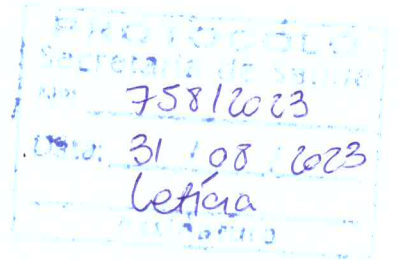 PROTOCOLO
Secretaria de Saúde
Nº: 758/2023
Data: 31 / 08 / 2023
Letícia
Assinatura